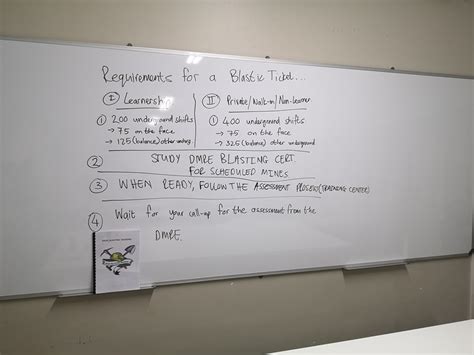 Requirements for a Blastic Ticket...
I Learnership
① 200 underground shifts
→ 75 on the face
→ 125 (balance) other underg
II Private/Walk-in/Non-Learner
① 400 underground shifts
→ 75 on the face
→ 325 (balance) other underground
② STUDY DMRE BLASTING CERT.
FOR SCHEDULED MINES
③ WHEN READY, FOLLOW THE ASSESSMENT PROCESS (TRAINING CENTER)
④ Wait for your call-up for the assessment from the
DMRE.